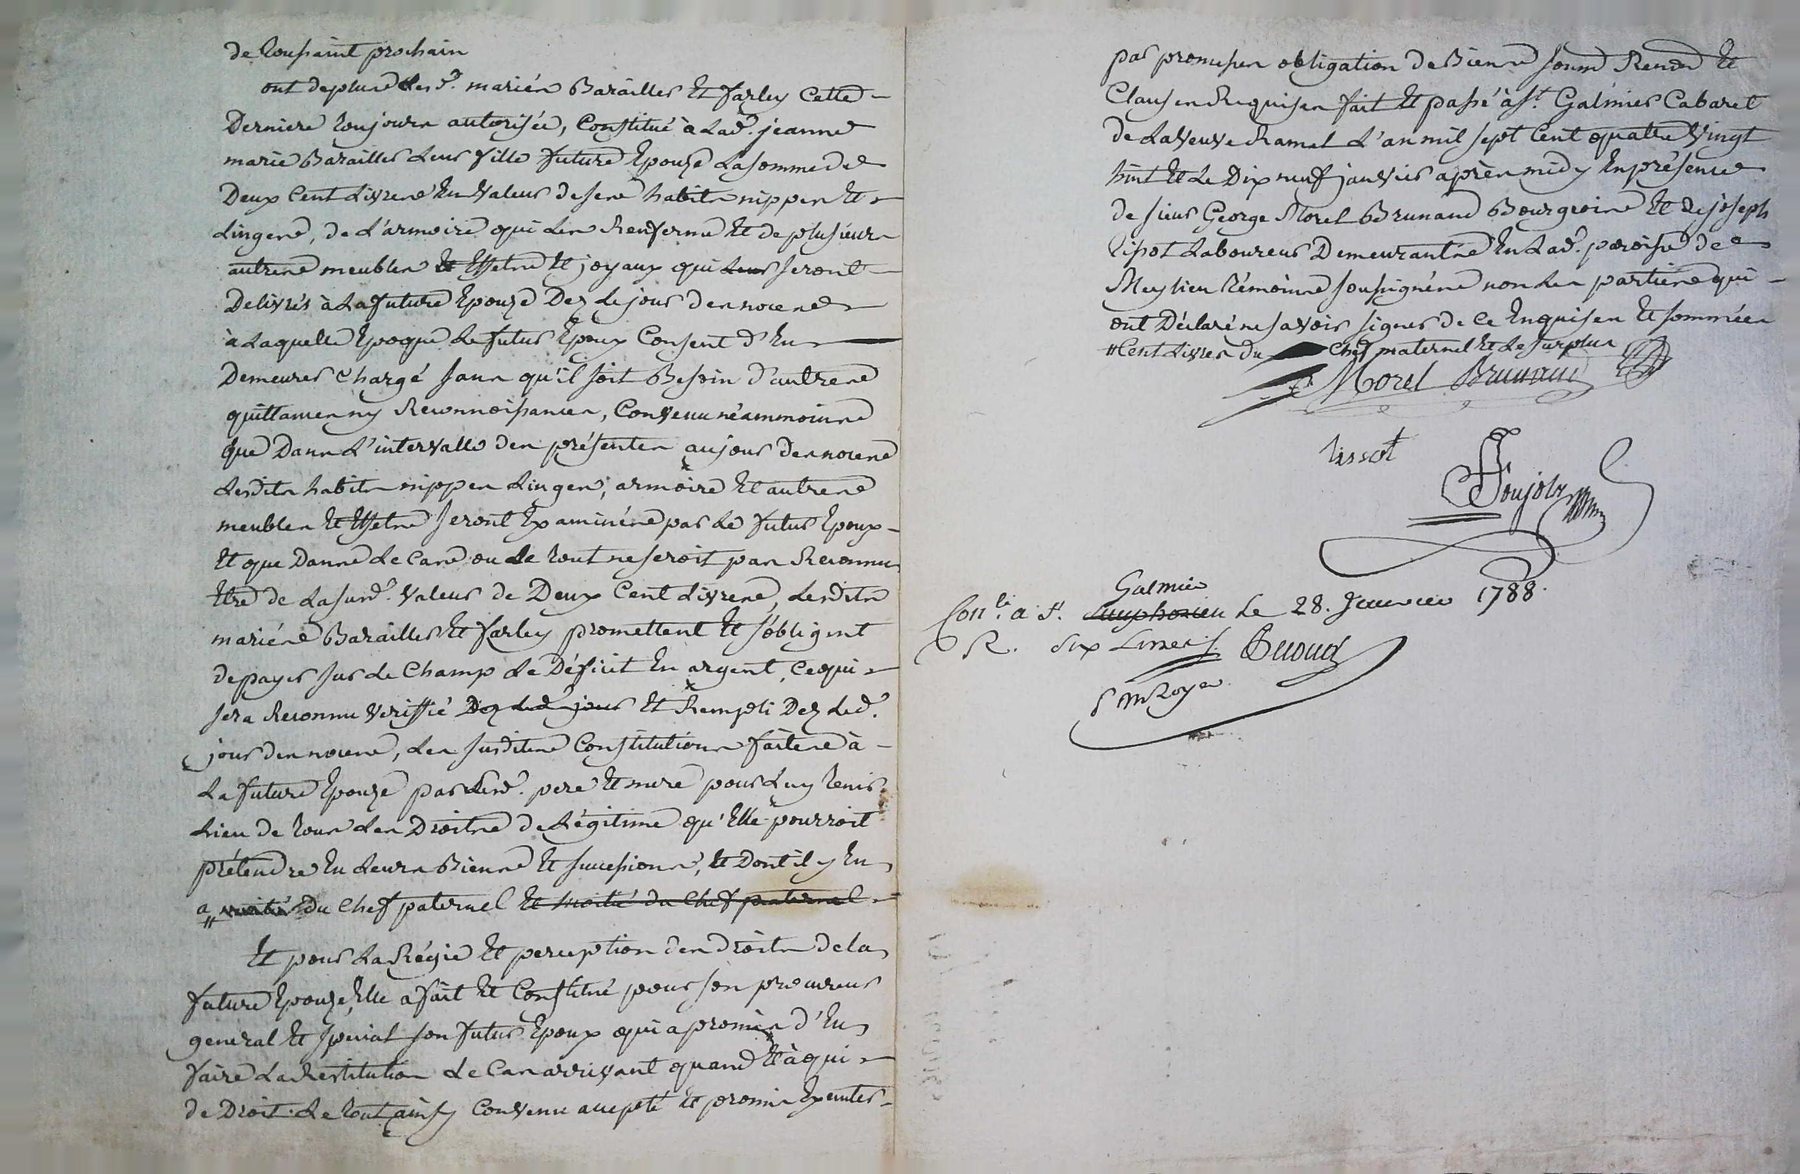 de toussaint prochain
ont de plus lesd. mariés Barailler Et farley cette
Derniere toujours autorisée, Constitué à Lad. jeanne
marie Barailler Leur fille future Epouze La somme de
Deux Cent Livres En valeur de ses habits nippes Et
Linges, de L'armoire qui Les Renferme Et de plusieurs
autres meubles Et Effets Et joyaux qui Leur seront
Delivrés à La future Epouze Dez Le jour des noces
à Laquelle Epoque Le futur Epoux Consent d'En
Demeurer Chargé sans qu'il soit Besoin d'autres
quittances ny Reconnoissances, Convenu néammoins
que Dans L'intervalle des présentes au jour des noces
Lesdits habits nippes Linges, armoire Et autres
meubles Et Effets seront Examinés par Le futur Epoux
Et que Dans Le cas ou Le tout ne seroit pas Reconnu
Etre de La susd. valeur de Deux Cent Livres, Lesdits
mariés Barailler Et farley promettent Et s'obligent
de payer sur Le Champ Le Déficit En argent, ce qui
sera Reconnu veriffié Dez Led. jour Et Rempli Dez Led.
jour des noces, Les susdites Constitutions faites à
La future Epouze par Lesd. pere Et mere pour Luy tenir
Lieu de tous Les Droits de Légitime qu'Elle pourroit
prétendre En Leurs Biens Et successions, Et Dont il y En
a moitié Du Chef paternel Et moitié du Chef paternel
Et pour La Régie Et perception des droits de la
future Epouze, Elle a fait Et Constitué pour son procureur
general Et special son futur Epoux qui a promis d'En
faire La Restitution Le Cas arrivant quand Et à qui
de Droit. Le tout ainsy Convenu accepté Et promis Executer
par promesses obligation de Biens soumd Renond Et
Clauses Requises fait Et passé à St. Galmier Cabaret
de La veuve Ramel L'an mil sept Cent quatre vingt
huit Et Le Dix neuf janvier après midy En présence
de sieur George Morel Brunand Bourgeois Et de joseph
tisot Laboureur Demeurants En Lad. paroisse de
Meylieu témoins soussignés non Les parties qui
ont Déclaré ne savoir signer de ce Enquises Et sommées
# Cent Livres du Chef maternel Et Le surplus
Morel Brunand
tissot
Poujol
Galmier
Con.lé a St. Simphorien Le 28. Janvier 1788.
R. Six Livres